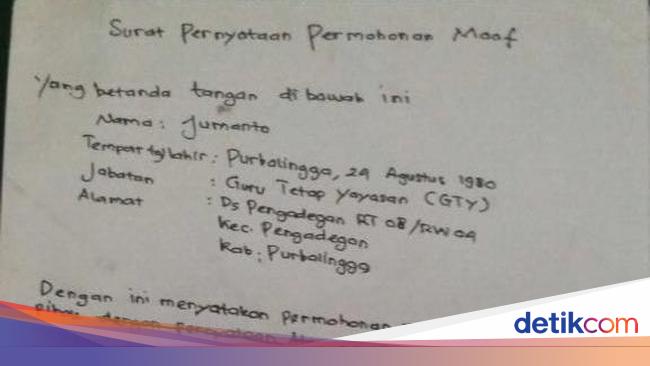 Surat Pernyataan Permohonan Maaf
Yang betanda tangan dibawah ini
Nama : Jumanto
Tempat tgl lahir : Purbalingga, 29 Agustus 1980
Jabatan : Guru Tetap Yayasan (GTY)
Alamat : Ds Pengadegan RT 08/RW 04
Kec. Pengadegan
Kab : Purbalingga
Dengan ini menyatakan permohonan
dengan
detikcom